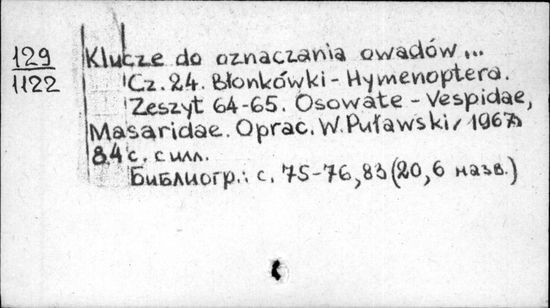 129
1122
Klucze do oznaczania owadów...
Cz. 24. Błonkówki - Hymenoptera.
Zeszyt 64-65. Osowate - Vespidae,
Masaridae. Oprac. W. Puławski, 1967.
84 с. с илл.
Библиогр.: с. 75-76, 83 (20, 6 назв.)